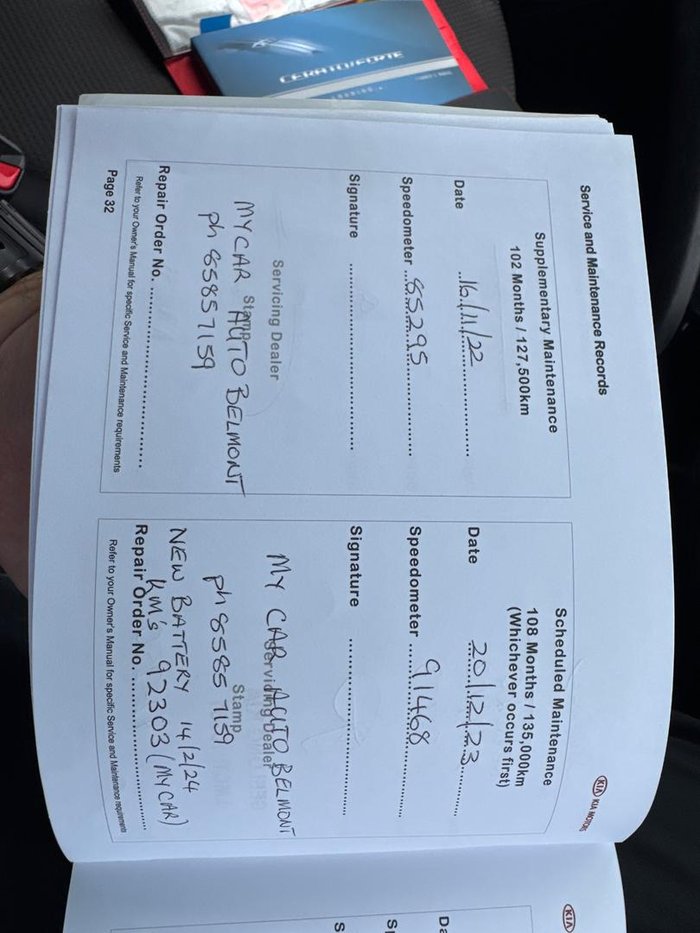 CERATO/FORTE
Service and Maintenance Records
KIA KIA MOTORS
Supplementary Maintenance
102 Months / 127,500km
Date 16/11/22
Speedometer 85295
Signature
Servicing Dealer
Stamp
MYCAR AUTO BELMONT
ph 85857159
Repair Order No.
Refer to your Owner's Manual for specific Service and Maintenance requirements
Page 32
Scheduled Maintenance
108 Months / 135,000km
(Whichever occurs first)
Date 20/12/23
Speedometer 91468
Signature
Servicing Dealer
Stamp
MY CAR AUTO BELMONT
ph 8585 7159
NEW BATTERY 14/2/24
KM's 92303 (MYCAR)
Repair Order No.
Refer to your Owner's Manual for specific Service and Maintenance requirements
KIA
Da
Sp
S